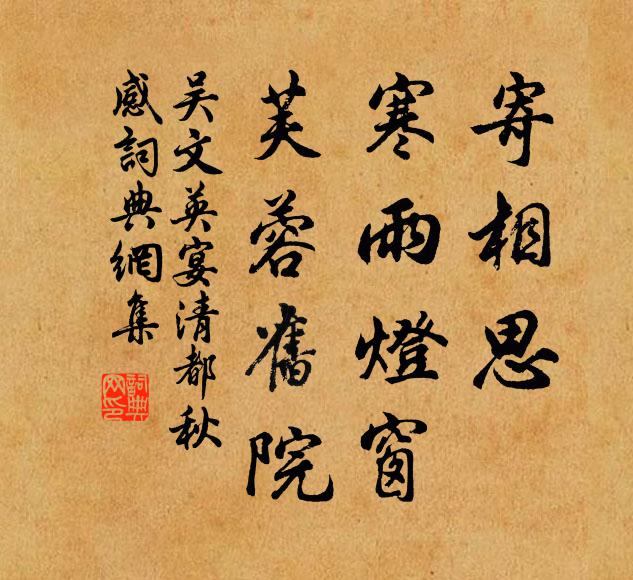 寄相思
寒雨燈窗
芙蓉舊院
吳文英宴清都秋
感詞典網集
詞典
网印